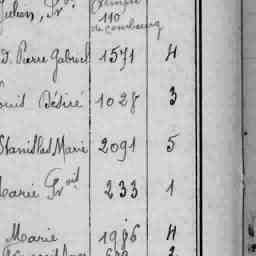 Julien, Fr.
110
de Combourg
d. Pierre Gabriel 1571 4
Louis Désiré 1028 3
Stanislas Marie 2091 5
Marie Fr.oise 233 1
Marie 1986 4